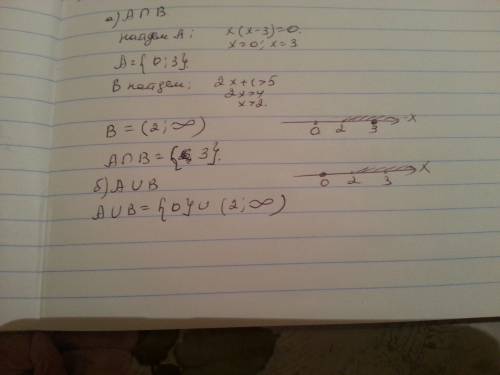 а) A ∩ B
найдем A: x(x-3)=0.
x=0; x=3
A={0;3}.
B найдем: 2x+1>5
2x>4
x>2.
B = (2; ∞)
0 2 3 x
A∩B = {3}.
0 2 3 x
б) A ∪ B
A∪B = {0} ∪ (2; ∞)